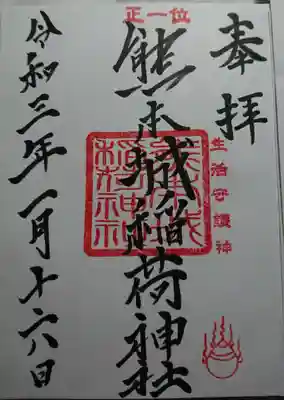 奉拝
正一位
熊本城稲荷神社
令和三年一月十六日